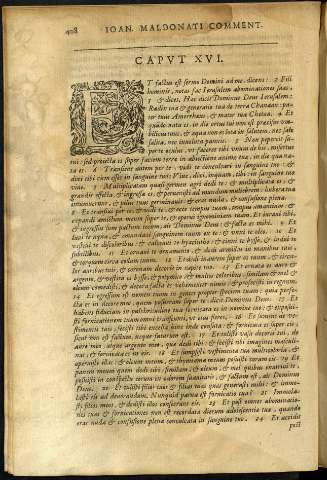 408 IOAN. MALDONATI COMMENT.
CAPVT XVI.
ET factus est sermo Domini ad me, dicens: 2 Fili
hominis, notas fac Ierusalem abominationes suas,
3 & dices, Hæc dicit Dominus Deus Ierusalem:
Radix tua & generatio tua de terra Chanaan: pa-
ter tuus Amorrhæus, & mater tua Cethæa. 4 Et
quando nata es, in die ortus tui non est præcisus vm-
bilicus tuus, & aqua non es lota in salutem, nec sale
salita, nec inuoluta pannis. 5 Non pepercit su-
per te oculus, vt faceret tibi vnum de his, misertus
tui: sed proiecta es super faciem terræ in abiectione animæ tuæ, in die qua na-
ta es. 6 Transiens autem per te, vidi te conculcari in sanguine tuo: & 
dixi tibi cùm esses in sanguine tuo: Viue, dixi, inquam, tibi: in sanguine tuo
viue. 7 Multiplicatam quasi germen agri dedi te: & multiplicata es, &
grandis effecta, & ingressa es, & peruenisti ad mundum muliebrem: vbera tua
intumuerunt, & pilus tuus germinauit: & eras nuda, & confusione plena.
8 Et transiui per te, & vidi te: & ecce tempus tuum, tempus amantium: &
expandi amictum meum super te, & operui ignominiam tuam. Et iuraui tibi,
& ingressus sum pactum tecum, ait Dominus Deus: & facta es mihi. 9 Et
laui te aqua, & emundaui sanguinem tuum ex te: & vnxi te oleo. 10 Et
vestiui te discoloribus: & calceaui te hyacintho: & cinxi te bysso, & indui te
subtilibus. 11 Et ornaui te ornamento, & dedi armillas in manibus tuis,
& torquem circa collum tuum. 12 Et dedi inaurem super os tuum, & circu-
los auribus tuis, & coronam decoris in capite tuo. 13 Et ornata es auro &
argento, & vestita es bysso, & polymito & multis coloribus: similam & mel &
oleum comedisti, & decora facta es vehementer nimis: & profecisti in regnum.
14 Et egressum est nomen tuum in gentes propter speciem tuam: quia perfe-
cta eras in decore meo, quem posueram super te, dicit Dominus Deus. 15 Et
habens fiduciam in pulchritudine tua fornicata es in nomine tuo: & exposui-
sti fornicationem tuam omni transeunti, vt eius fieres. 16 Et sumens de ve-
stimentis tuis, fecisti tibi excelsa hinc inde consuta, & fornicata es super eis,
sicut non est factum, neque futurum est. 17 Et tulisti vasa decoris tui, de
auro meo, atque argento meo, quæ dedi tibi: & fecisti tibi imagines masculi-
nas, & fornicata es in eis. 18 Et sumpsisti vestimenta tua multicoloria, &
operuisti illas: & oleum meum, & thymiama meum posuisti coram eis. 19 Et
panem meum quem dedi tibi, similam, & oleum, & mel, quibus enutriui te,
posuisti in conspectu eorum in odorem suauitatis, & factum est, ait Dominus
Deus. 20 Et tulisti filios tuos & filias tuas quas generasti mihi: & immo-
lasti eis ad deuorandum. Nunquid parua est fornicatio tua? 21 Immola-
sti filios meos, & dedisti illos consecrans eis. 22 Et post omnes abominatio-
nes tuas & fornicationes non es recordata dierum adolescentiæ tuæ, quando
eras nuda & confusione plena conculcata in sanguine tuo. 23 Et accidit
post